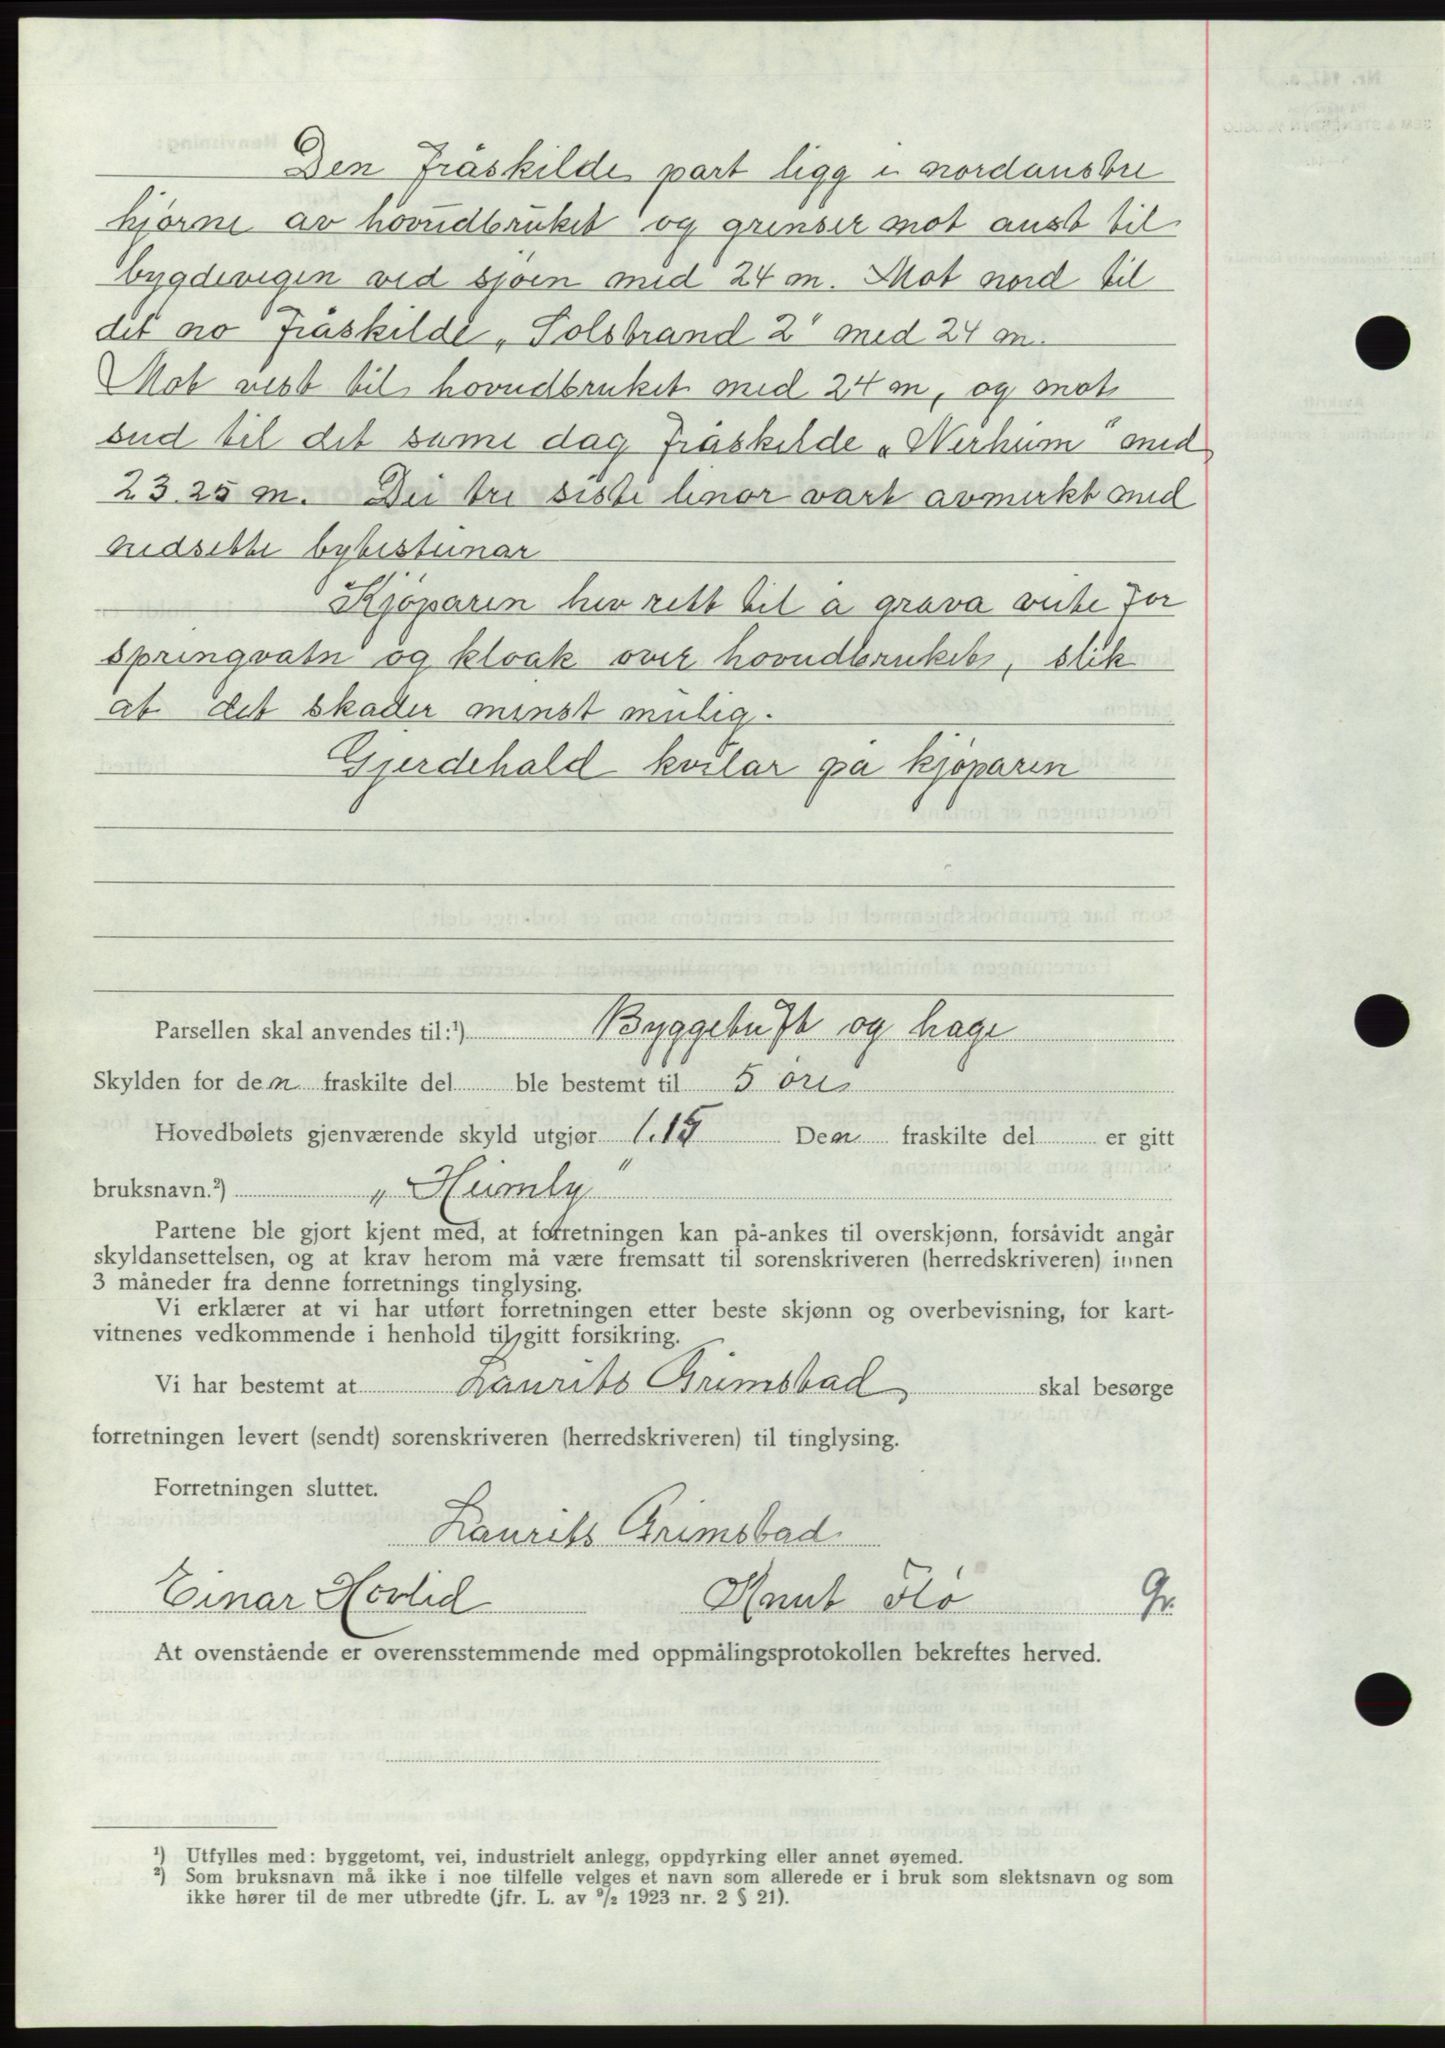 Den fråskilde part ligg i nordaustre
hjørne av hovudbruket og grenser mot aust til
bygdevegen ved sjøen med 24 m. Mot nord til
det no fråskilde „Solstrand 2" med 24 m.
Mot vest til hovudbruket med 24 m, og mot
sud til det same dag fråskilde „Nerheim" med
23.25 m. Dei tre siste linor vart avmerkt med
nedsette bytesteinar
Kjøparen hev rett til å grava veite for
springvatn og kloak over hovudbruket, slik
at det skader minst mulig.
Gjerdehald kvilar på kjøparen
Parsellen skal anvendes til:¹) Byggetuft og hage
Skylden for den fraskilte del ble bestemt til 5 øre
Hovedbølets gjenværende skyld utgjør 1.15 Den fraskilte del er gitt
bruksnavn.²) „Heimly"
Partene ble gjort kjent med, at forretningen kan på-ankes til overskjønn, forsåvidt angår
skyldansettelsen, og at krav herom må være fremsatt til sorenskriveren (herredskriveren) innen
3 måneder fra denne forretnings tinglysing.
Vi erklærer at vi har utført forretningen etter beste skjønn og overbevisning, for kart-
vitnenes vedkommende i henhold til gitt forsikring.
Vi har bestemt at Laurits Grimstad skal besørge
forretningen levert (sendt) sorenskriveren (herredskriveren) til tinglysing.
Forretningen sluttet.
Laurits Grimstad
Einar Hovlid Knut Flø Gr.
At ovenstående er overensstemmende med oppmålingsprotokollen bekreftes herved.
¹) Utfylles med: byggetomt, vei, industrielt anlegg, oppdyrking eller annet øyemed.
²) Som bruksnavn må ikke i noe tilfelle velges et navn som allerede er i bruk som slektsnavn og som
ikke hører til de mer utbredte (jfr. L. av ⁹/₂ 1923 nr. 2 § 21).